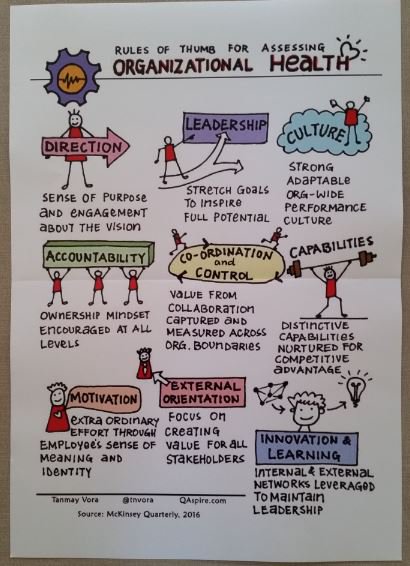 RULES OF THUMB FOR ASSESSING
ORGANIZATIONAL HEALTH
DIRECTION
SENSE OF PURPOSE
AND ENGAGEMENT
ABOUT THE VISION
LEADERSHIP
STRETCH GOALS
TO INSPIRE
FULL POTENTIAL
CULTURE
STRONG
ADAPTABLE
ORG-WIDE
PERFORMANCE
CULTURE
ACCOUNTABILITY
OWNERSHIP MINDSET
ENCOURAGED AT ALL
LEVELS
CO-ORDINATION
AND
CONTROL
VALUE FROM
COLLABORATION
CAPTURED AND
MEASURED ACROSS
ORG. BOUNDARIES
CAPABILITIES
DISTINCTIVE
CAPABILITIES
NURTURED FOR
COMPETITIVE
ADVANTAGE
MOTIVATION
EXTRA ORDINARY
EFFORT THROUGH
EMPLOYEE'S SENSE OF
MEANING AND
IDENTITY
EXTERNAL
ORIENTATION
FOCUS ON
CREATING
VALUE FOR ALL
STAKEHOLDERS
INNOVATION &
LEARNING
INTERNAL & EXTERNAL
NETWORKS LEVERAGED
TO MAINTAIN
LEADERSHIP
Tanmay Vora @tnvora QAspire.com
Source: McKinsey Quarterly, 2016